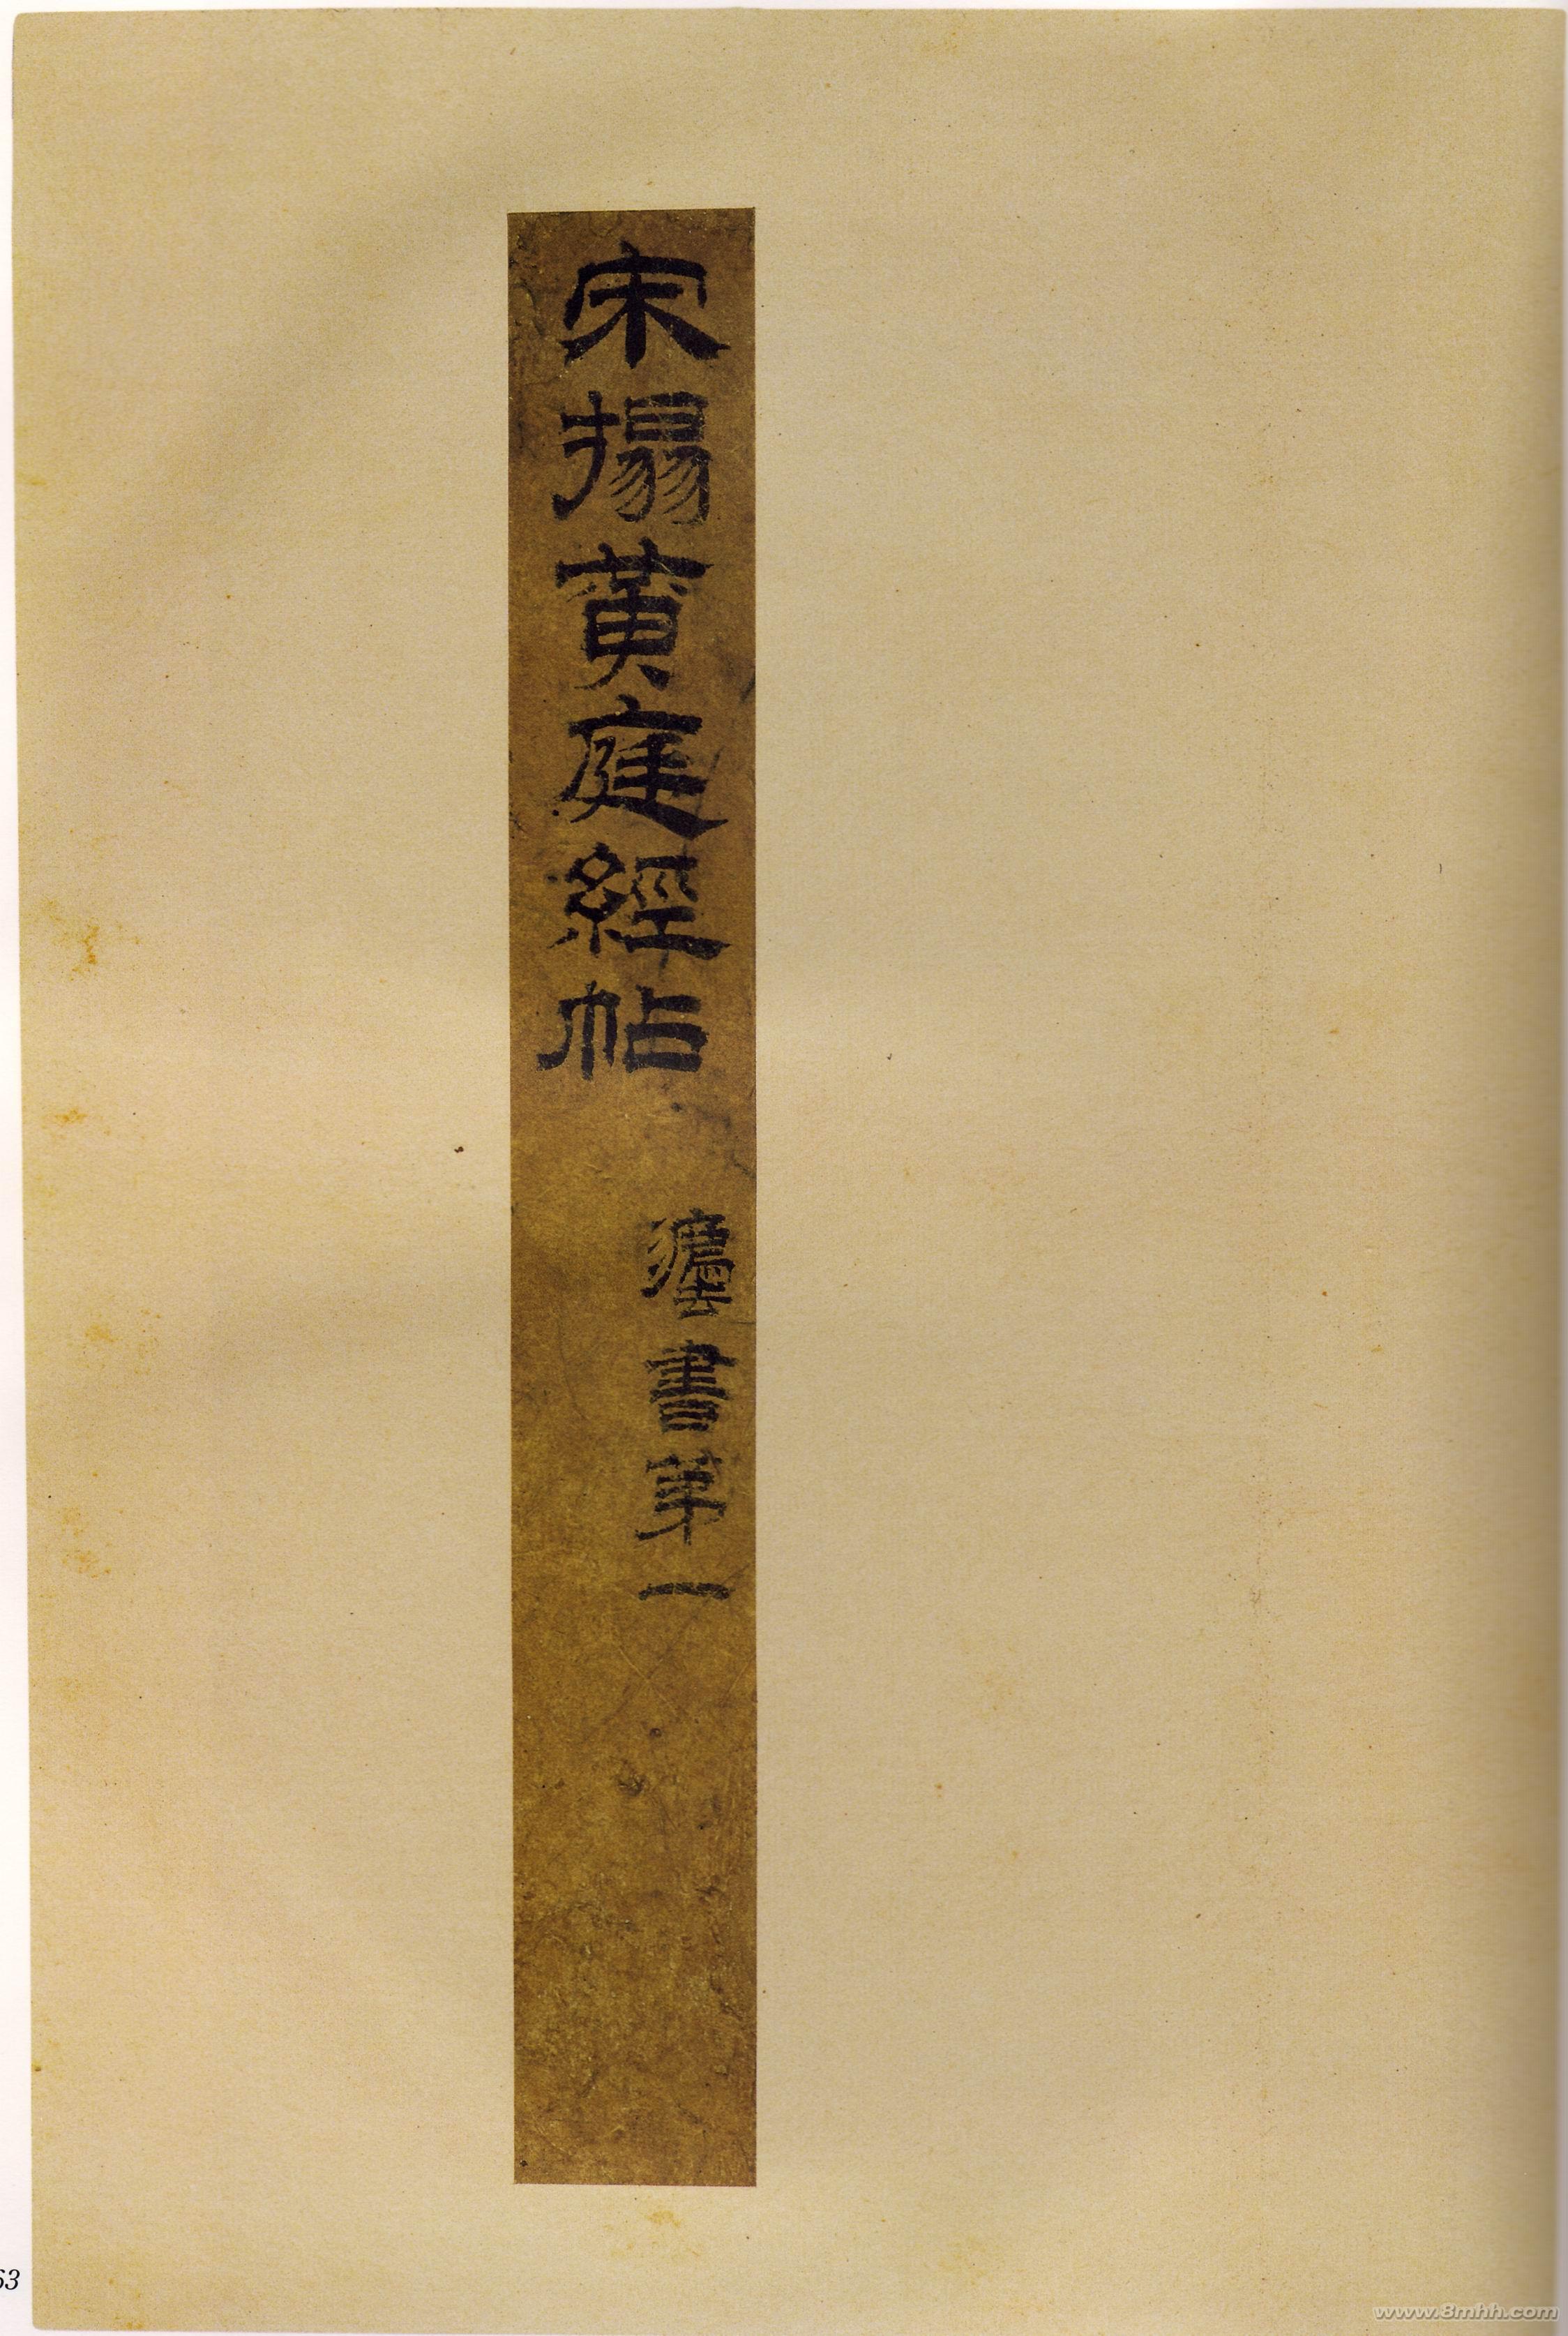 宋搨黄庭經帖
灋書第一
63
www.8mhh.com